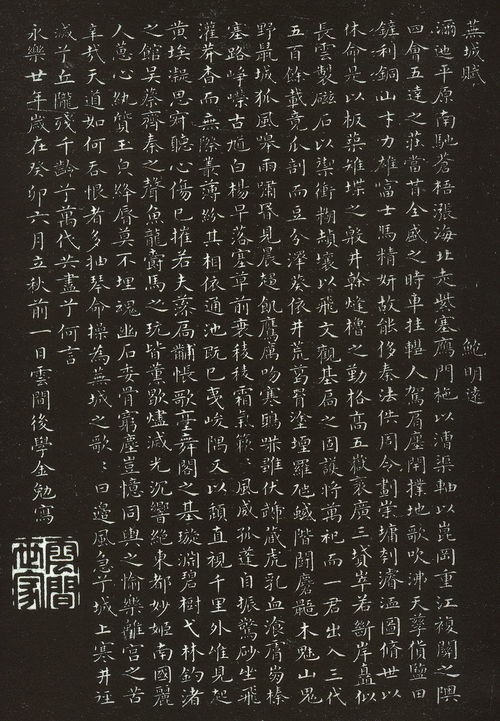 蕪城賦 鮑明遠
瀰迆平原南馳蒼梧漲海北走紫塞鴈門柂以漕渠軸以崑岡重江複關之隩
四會五達之莊當昔全盛之時車挂轊人駕肩廛閈撲地歌吹沸天孳貨鹽田
鏟利銅山才力雄富士馬精妍故能侈秦法佚周令劃崇墉刳濬洫圖脩世以
休命是以板築雉堞之殷井幹烽櫓之勤格高五嶽袤廣三墳崒若斷岸矗似
長雲製磁石以禦衝糊赬壤以飛文觀基扃之固護將萬祀而一君出入三代
五百餘載竟瓜剖而豆分澤葵依井荒葛罥塗壇羅虺蜮階鬬麏鼯木魅山鬼
野鼠城狐風嘷雨嘯昏見晨趨飢鷹厲吻寒鴟嚇雛伏虣藏虎乳血飡膚崩榛
塞路崢嶸古馗白楊早落寒草前衰稜稜霜氣簌簌風威孤蓬自振驚砂坐飛
灌莽杳而無際叢薄紛其相依通池既已夷峻隅又以頹直視千里外唯見起
黃埃凝思寂聽心傷已摧若夫藻扃黼帳歌堂舞閣之基璇淵碧樹弋林釣渚
之館吳蔡齊秦之聲魚龍爵馬之玩皆薰歇燼滅光沉響絕東都妙姬南國麗
人蕙心紈質玉皃絳脣莫不埋魂幽石委骨窮塵豈憶同輿之愉樂離宮之苦
辛哉天道如何吞恨者多抽琴命操為蕪城之歌〻曰邊風急兮城上寒井逕
滅兮丘隴殘千齡兮萬代共盡兮何言
永樂廿年歲在癸卯六月立秋前一日雲間後學金勉寫
雲間世家